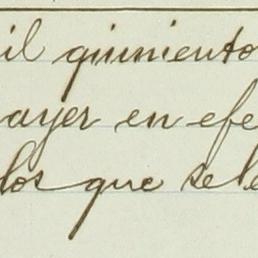 il quiniento
ayer en efe
los que se le